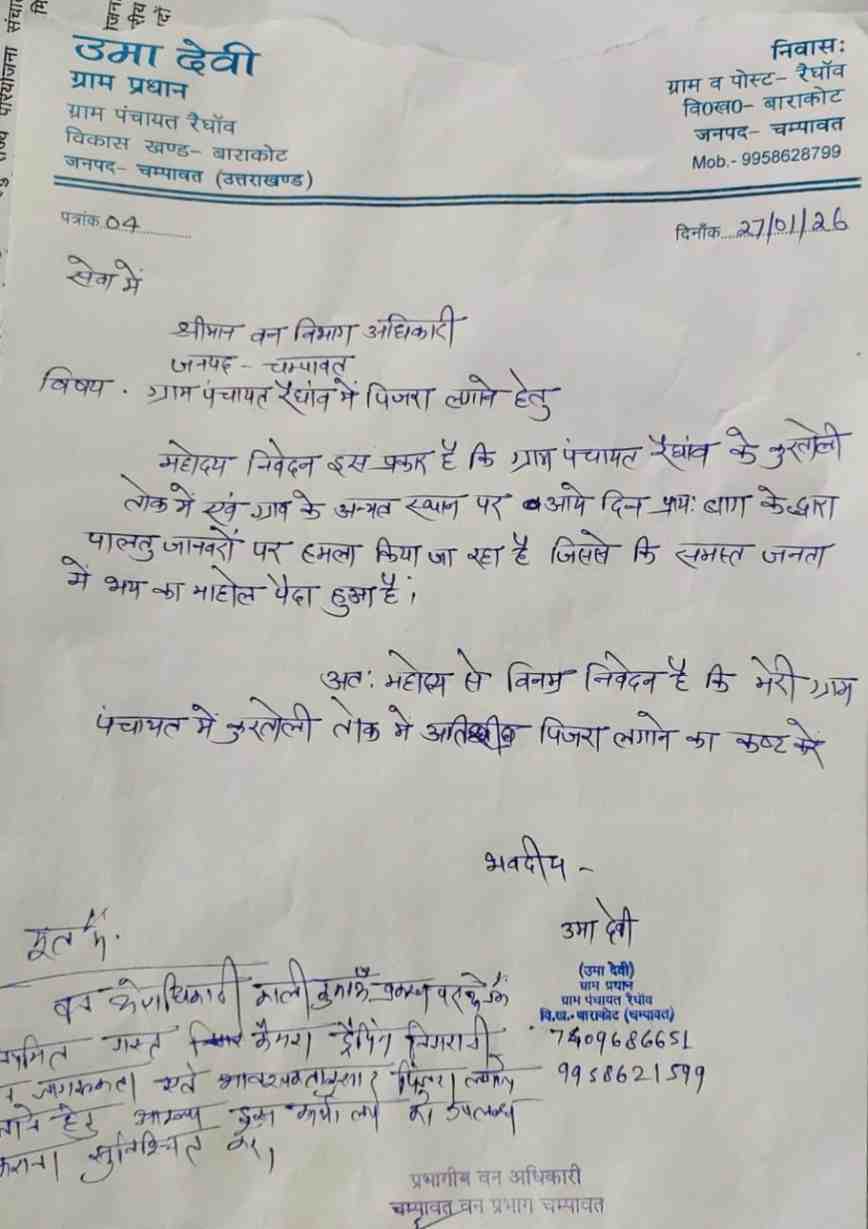 उमा देवी
ग्राम प्रधान
ग्राम पंचायत रैघॉव
विकास खण्ड- बाराकोट
जनपद- चम्पावत (उत्तराखण्ड)
निवास:
ग्राम व पोस्ट- रैघॉव
वि0ख0- बाराकोट
जनपद- चम्पावत
Mob.- 9958628799
पत्रांक 04
दिनाँक 27/01/26
सेवा में
श्रीमान वन विभाग अधिकारी
जनपद - चम्पावत
विषय . ग्राम पंचायत रैघांव में पिजरा लगाने हेतु
महोदय निवेदन इस प्रकार है कि ग्राम पंचायत रैघांव के कुरतोली
तोक में एवं ग्राव के अन्यत स्थान पर आये दिन प्राय: बाग के द्वारा
पालतु जानवरों पर हमला किया जा रहा है जिससे कि समस्त जनता
में भय का माहोल पैदा हुआ है।
अत: महोदय से विनम्र निवेदन है कि मेरी ग्राम
पंचायत में कुरतोली तोक मे पिजरा लगाने का कष्ट करें
भवदीय -
उमा देवी
(उमा देवी)
ग्राम प्रधान
ग्राम पंचायत रैघॉव
वि.ख.-बाराकोट (चम्पावत)
7409686651
9958621599
मूल में.
वन काली कुमाऊँ
गस्त कैमरा ट्रैपिंग निगरानी
एवं आवश्यकतानुसार पिंजरा लगाये
जाने हेतु आख्या इस कार्यालय को उपलब्ध
कराना सुनिश्चित करें।
प्रभागीय वन अधिकारी
चम्पावत वन प्रभाग चम्पावत